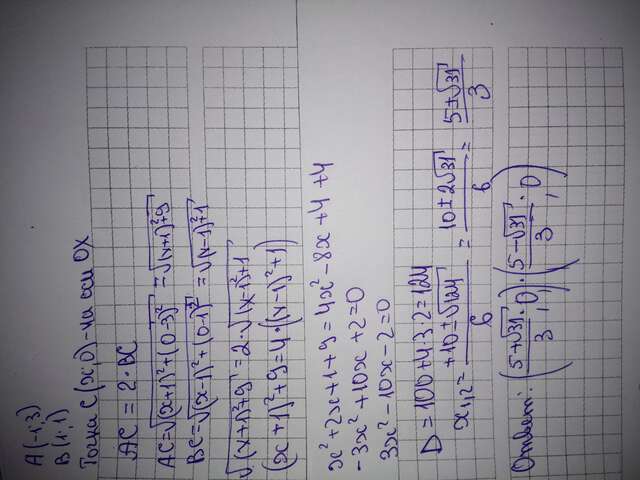 A(-1;3)
B(1;1)
Точка C(x;0)-на оси OX
AC = 2·BC
AC=√((x+1)²+(0-3)²) = √((x+1)²+9)
BC=√((x-1)²+(0-1)²) = √((x-1)²+1)
√((x+1)²+9) = 2·√((x-1)²+1)
(x+1)²+9=4·((x-1)²+1)
x²+2x+1+9=4x²-8x+4+4
-3x²+10x+2=0
3x²-10x-2=0
D=100+4·3·2=124
x₁,₂= (+10±√124)/6 = (10±2√31)/6 = (5±√31)/3
Ответ: ((5+√31)/3; 0); ((5-√31)/3; 0)